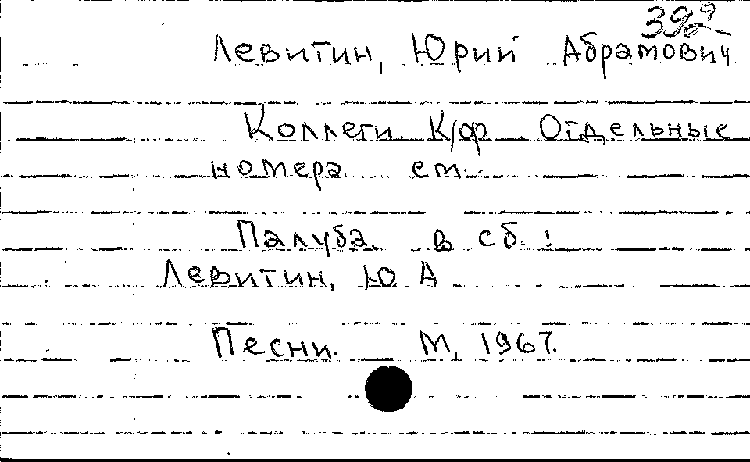 392
Левитин, Юрий Абрамович
Коллеги К/ф Отдельные
номера см.
Палуба в сб.:
Левитин, Ю А
Песни. М, 1967.